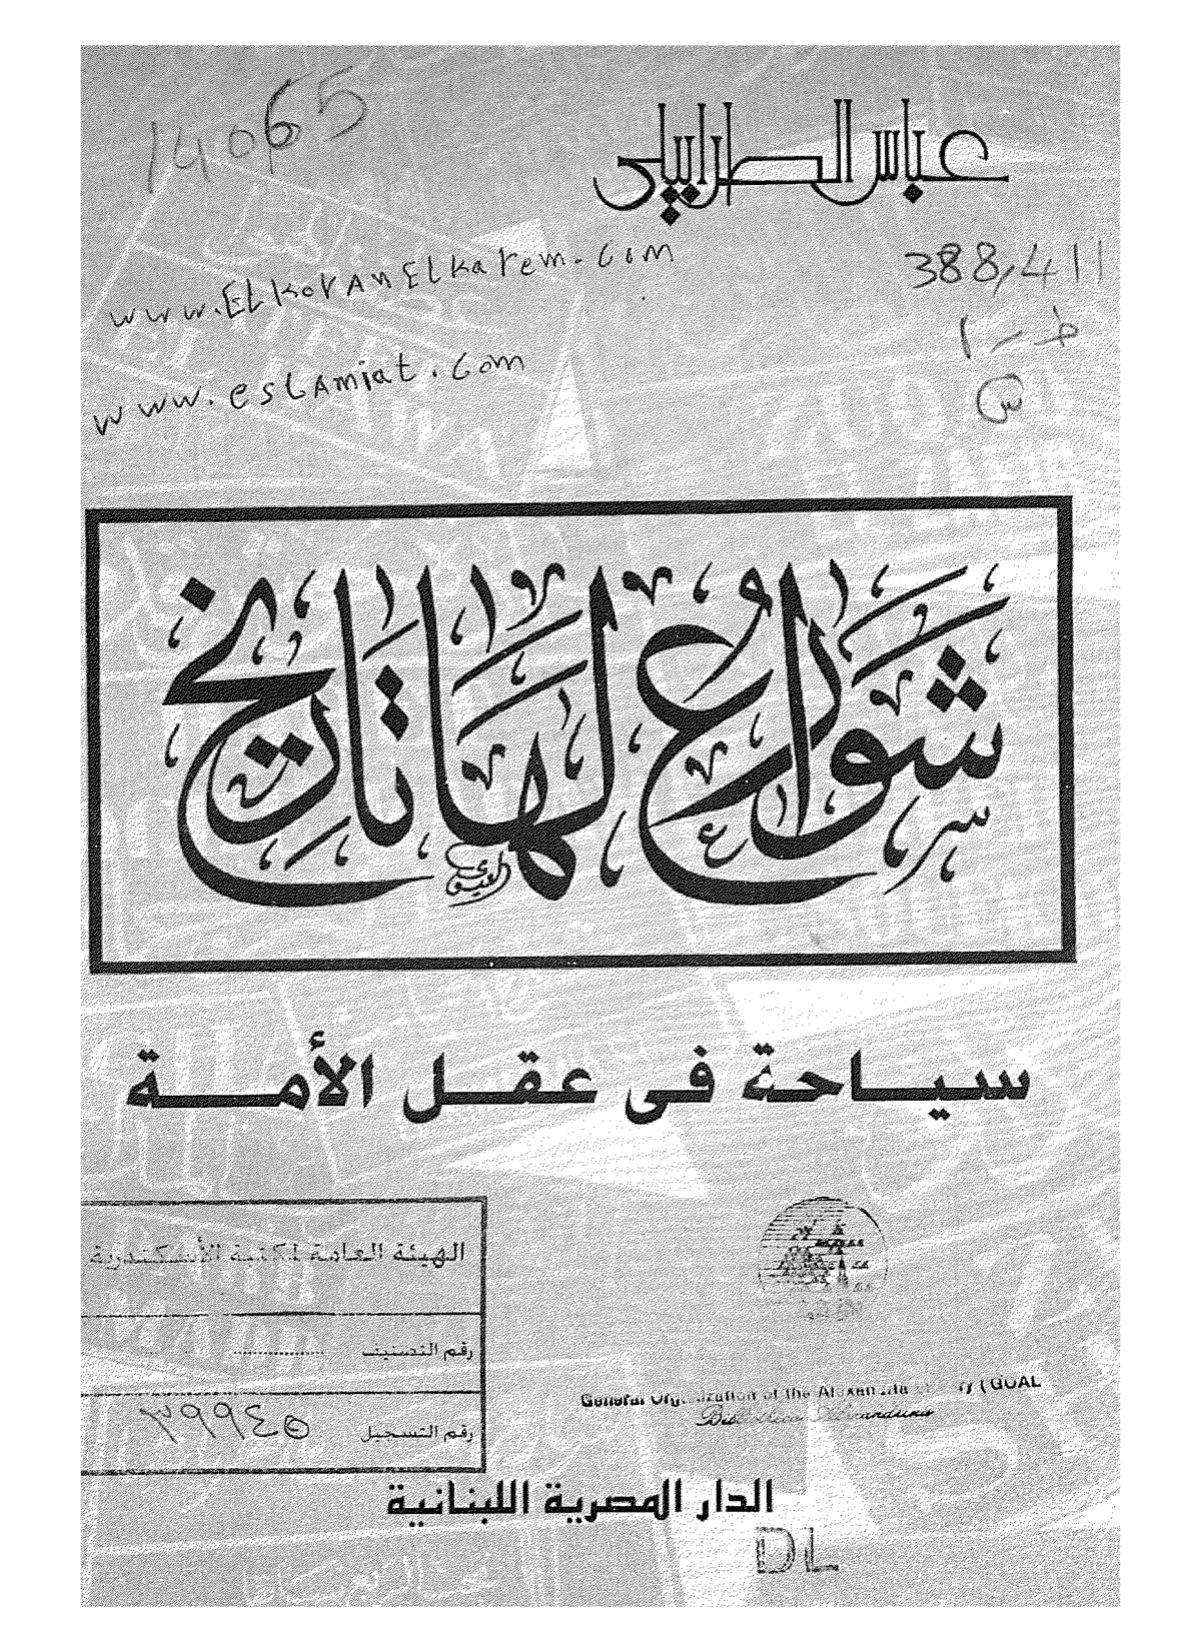 عباس الطرابيلى
14065
388,411
ط - ا
س
www.ELKorAnELkarem.com
www.esLAmiat.com
شوارع لها تاريخ
سياحة فى عقل الأمة
الهيئة العامة لمكتبة الأسكندرية
رقم التصنيف
رقم التسجيل ٣٩٩٤٥
General Organization of the Alexandria (GOAL
Bibliotheca Alexandrina
الدار المصرية اللبنانية
DL